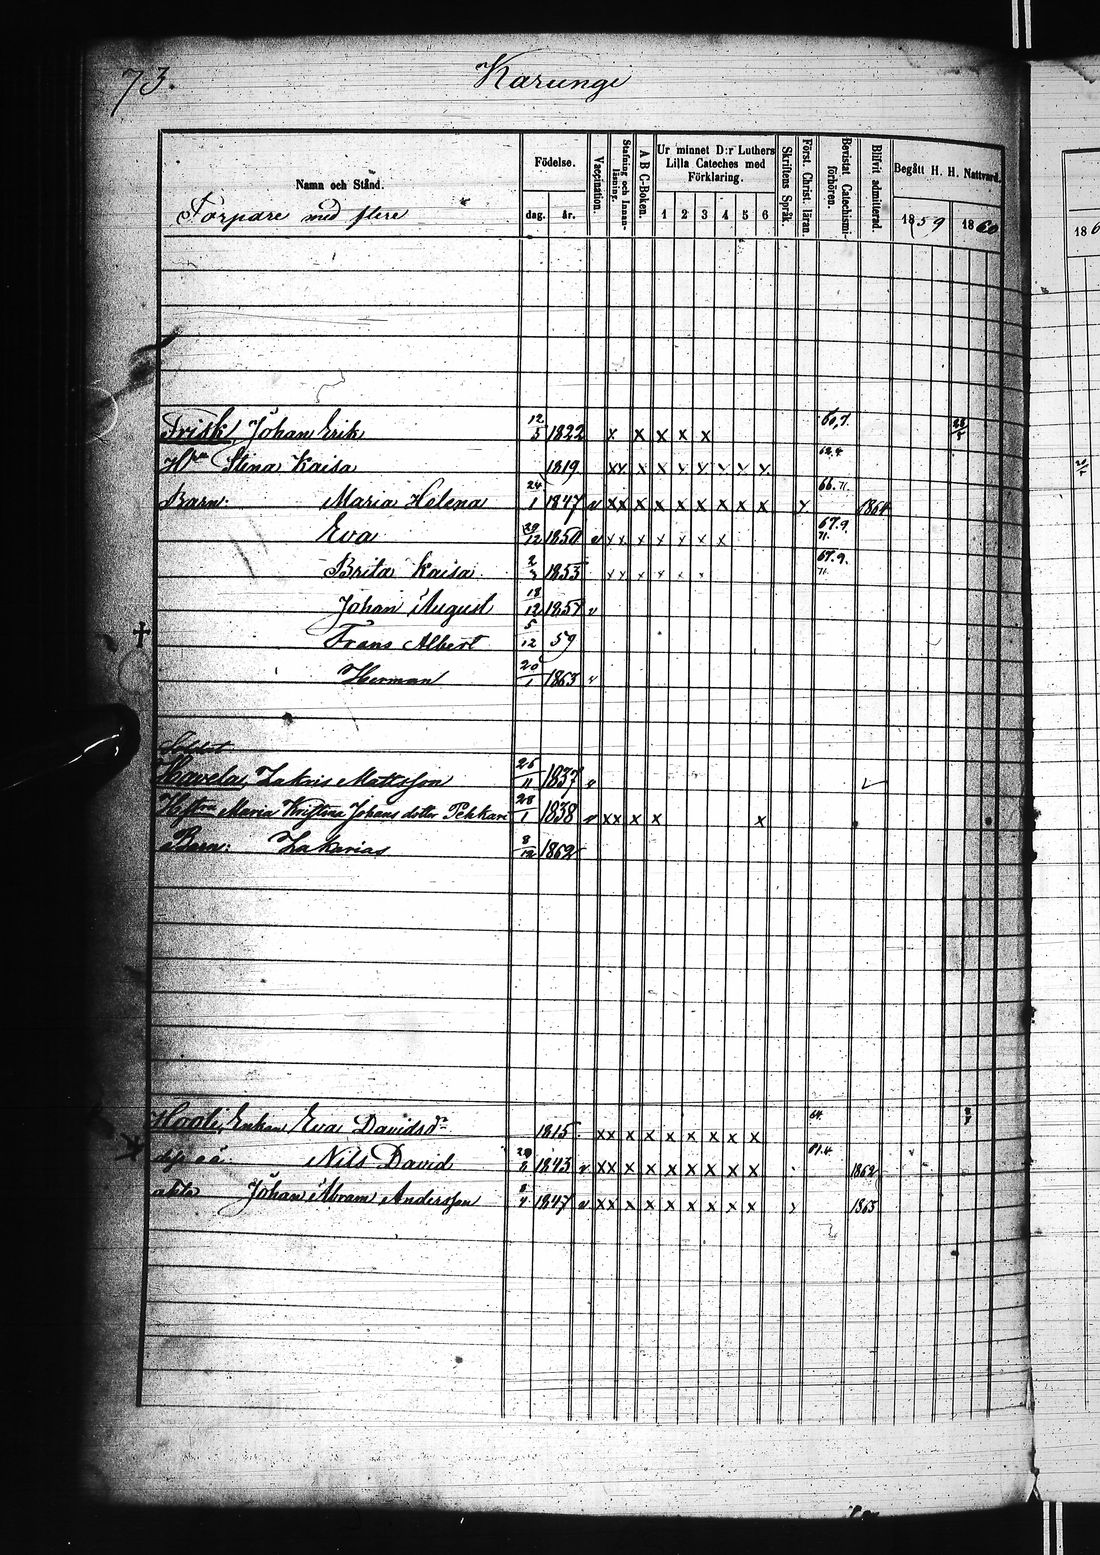 73.
Karungi
Namn och Stånd.
Torpare med flere
Födelse.
dag. år.
Vaccination.
Stafning och Innanläsning.
A B C-Boken.
Ur minnet D:r Luthers Lilla Cateches med Förklaring.
1 2 3 4 5 6
Skriftens Språk.
Först. Christ. läran.
Bevistat Catechismiförhören.
Blifvit admitterad.
Begått H. H. Nattvard.
1859 1860
Frisk, Johan Erik 12/5 1822 x x x x x 60,7.
H:n Stina Kaisa 1819 xx x x x x x x x
Barn: Maria Helena 24/1 1847 v xx x x x x x x x y 66.71. 1864
Eva 29/12 1850 v xx x x x x x 67.9. 71.
Brita Kaisa 1853 xx x x x x 67.9. 71.
Johan August 18/12 1857 v
† Frans Albert 5/12 59
Herman 20/1 1863 v
Soldat
Havela, Zakris Mattsson 1837 v
Hustrun Maria Kristina Johans dotter Pekkari 28/1 1838 v xx x x x
Barn: Zakarias 8/12 1862
Hooli, Enkan Eva Davidsdr 1815 xx x x x x x x x 64
Nils David 1843 v xx x x x x x x x 61.4 1862
Johan Abram Andersson 1847 v xx x x x x x x x y 1863